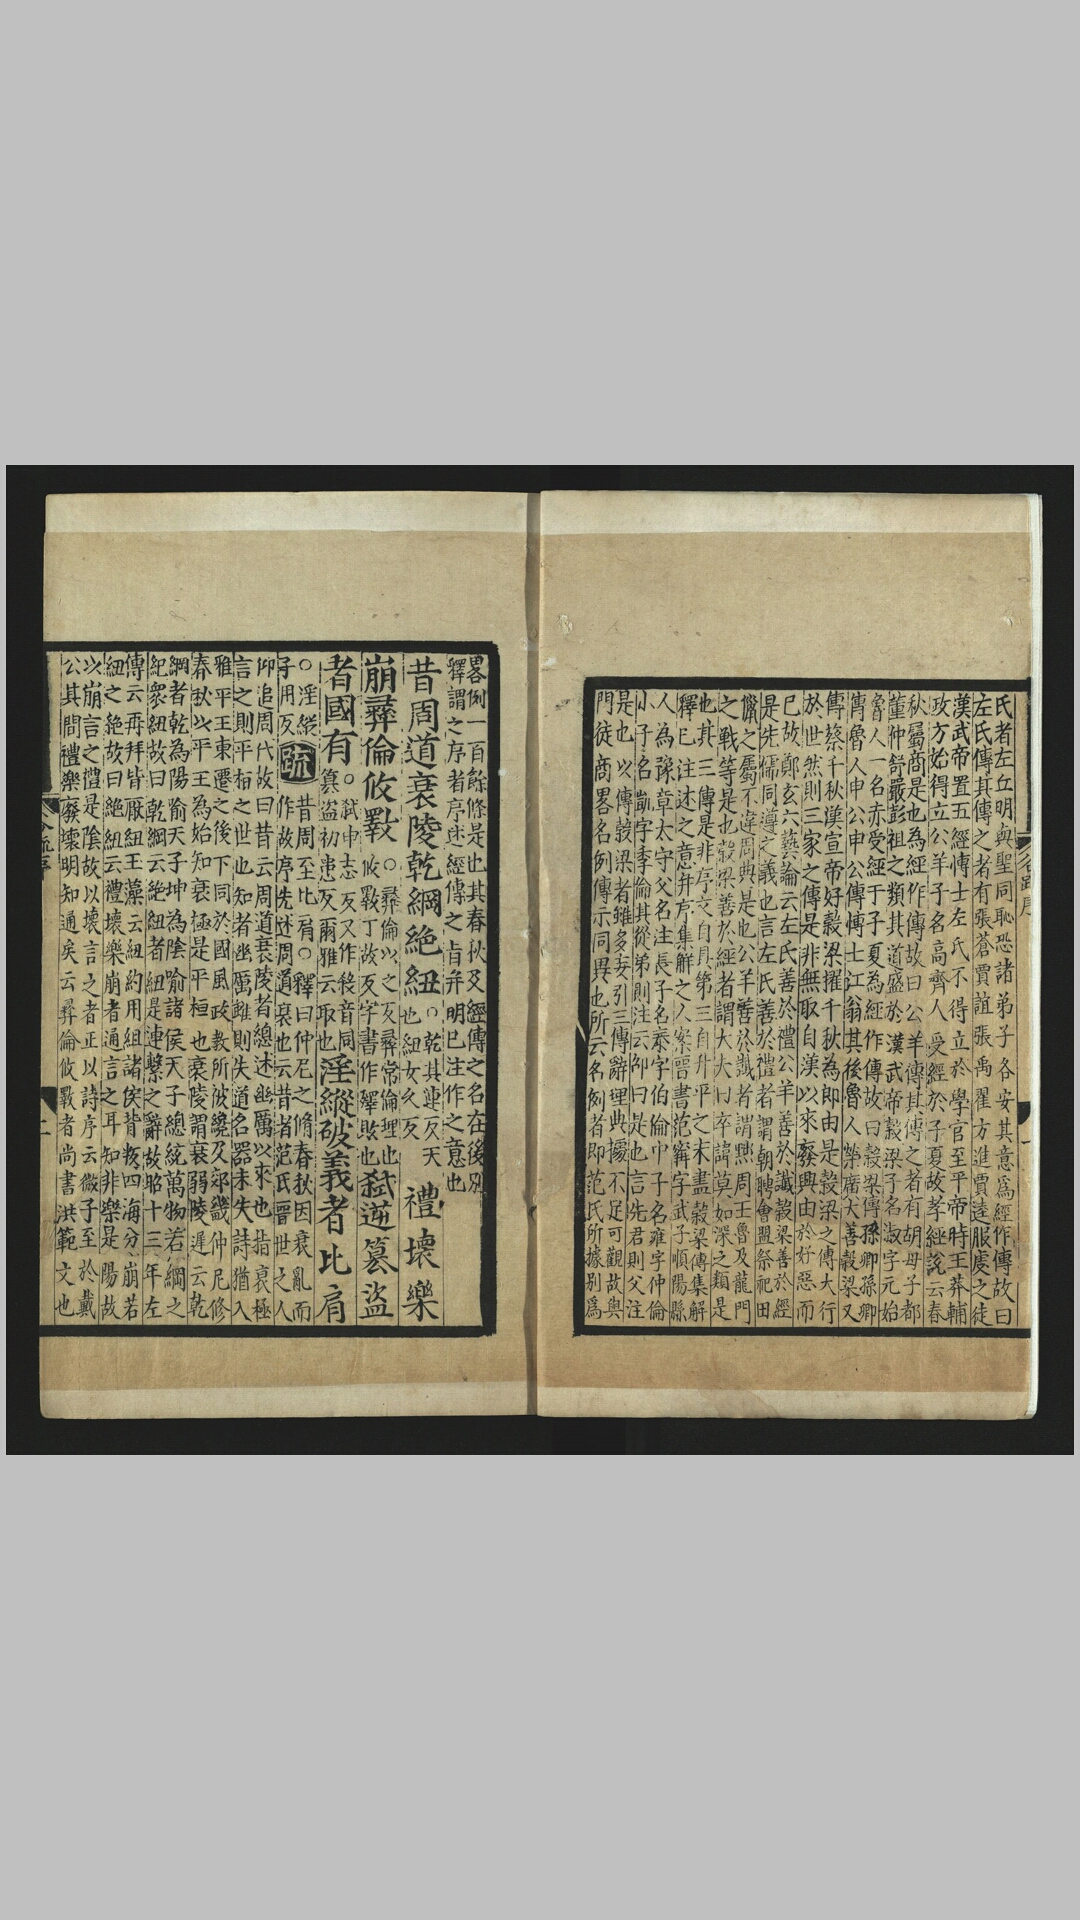 氏者左丘明與聖同恥恐諸弟子各安其意為經作傳故曰
左氏傳其傳之者有張蒼賈誼張禹翟方進賈逵服虔之徒
漢武帝置五經博士左氏不得立於學官至平帝時王莽輔
政方始得立公羊子名高齊人受經於子夏故孝經說云春
秋屬商是也為經作傳故曰公羊傳其傳之者有胡母子都
董仲舒嚴彭祖之類其道盛於漢武帝穀梁子名淑字元始
魯人一名赤受經于子夏為經作傳故曰穀梁傳孫卿孫卿
傳魯人申公申公傳博士江翁其後魯人榮廣大善穀梁又
傳蔡千秋漢宣帝好穀梁擢千秋為郎由是穀梁之傳大行
於世然則三家之傳是非無取自漢以來廢興由於好惡而
已故鄭玄六藝論云左氏善於禮公羊善於讖穀梁善於經
是先儒同遵之義也言左氏善於禮者謂朝聘會盟祭祀田
獵之屬不違周典是也公羊善於讖者謂黜周王魯及龍門
之戰等是也穀梁善於經者謂大夫曰卒諱莫如深之類是
也其三傳是非序文自具第三自升平之末盡穀梁傳集解
釋已注述之意并序集解之人案晉書范甯字武子順陽縣
人為豫章太守父名汪長子名泰字伯倫中子名雍字仲倫
小子名凱字季倫其從弟則注云邵曰是也言先君則父汪
是也以傳穀梁者雖多妄引三傳辭理典據不足可觀故與
門徒商畧名例傳示同異也所云名例者即范氏所據別為
畧例一百餘條是也其春秋及經傳之名在後別
釋謂之序者序述經傳之旨并明已注作之意也
昔周道衰陵乾綱絶紐○乾其連反天也紐女久反禮壞樂
崩彝倫攸斁○彝倫以之反彝常倫理也攸斁丁故反字書作殬敗也弑逆篡盜
者國有○弑申志反又作殺音同篡盜初患反爾雅云取也淫縱破義者比肩
○淫縱子用反疏昔周至比肩○釋曰仲尼之脩春秋因衰亂而作故序先述周道衰也云昔者范氏晉世之人
仰追周代故曰昔云周道衰陵者總述幽厲以來也指衰極
言之則平桓之世也知者幽厲雖則失道名器未失詩猶入
雅平王東遷之後下同於國風政教所被纔及郊畿仲尼修
春秋以平王為始知衰極是平桓也衰陵謂衰弱陵遲云乾
綱者乾為陽喻天子坤為陰喻諸侯天子總統萬物若綱之
紀衆紐故曰乾綱云絶紐者紐是連繫之辭故昭十三年左
傳云再拜皆厭紐玉藻云紐約用組諸侯背叛四海分崩若
紐之絶故曰絶紐云禮壞樂崩者通言之耳知非樂是陽故
以崩言之禮是陰故以壞言之者正以詩序云微子至於戴
公其間禮樂廢壞明知通矣云彝倫攸斁者尚書洪範文也